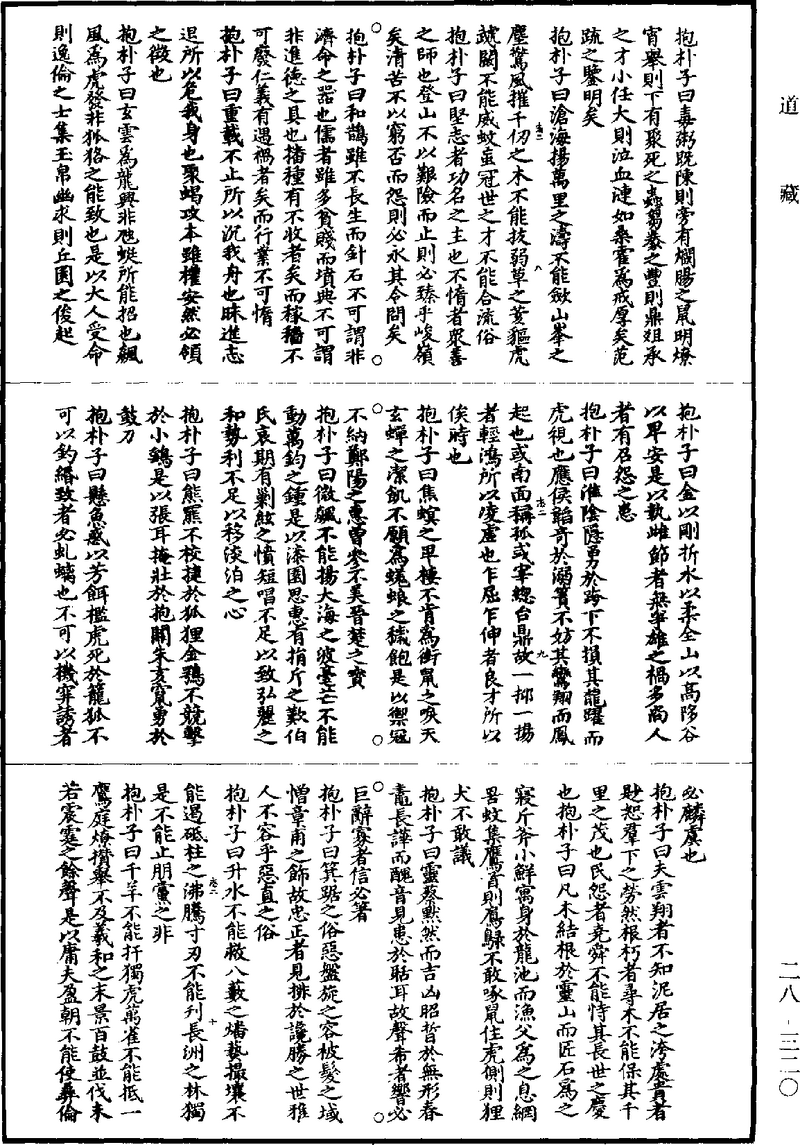 道藏
抱朴子曰毒粥既陳則旁有爛腸之鼠明燎
宵舉則下有聚死之蟲芻豢之豐則鼎俎承
之才小任大則泣血漣如桑霍為戒厚矣范
疏之鑒明矣
抱朴子曰滄海揚萬里之濤不能斂山峯之
塵驚風摧千仞之木不能拔弱草之荄貙虎
虣闞不能威蚊虽冠世之才不能合流俗
抱朴子曰堅志者功名之主也不惰者衆善
之師也登山不以艱險而止則必臻乎峻嶺
矣清苦不以窮否而怨則必永其令問矣
抱朴子曰和鵲雖不長生而針石不可謂非
濟命之器也儒者雖多貧賤而墳典不可謂
非進徳之具也播種有不收者矣而稼穡不
可廢仁義有遇禍者矣而行業不可惰
抱朴子曰重載不止所以沉我舟也昧進忘
退所以危我身也聚蝎攻本雖權安然必傾
之徵也
抱朴子曰玄雲為龍興非虺蜓所能招也飆
風為虎發非狐狢之能致也是以大人受命
則逸倫之士集玉帛幽求則丘園之俊起
抱朴子曰金以剛折水以柔全山以高陊谷
以卑安是以執雌節者無爭雄之禍多尚人
者有召怨之患
抱朴子曰淮陰隱勇於跨下不損其龍躍而
虎視也應侯韜奇於溺簀不妨其鸞翔而鳳
起也或南面稱孤或宰總台鼎故一抑一揚
者輕鴻所以凌虛也乍屈乍伸者良才所以
俟時也
抱朴子曰焦螟之卑棲不肯為銜鼠之唳天
玄蟬之潔飢不願為蜣蜋之穢飽是以禦冠
不納鄭陽之惠曾參不美晉楚之寶
抱朴子曰微飆不能揚大海之波毫芒不能
動萬鈞之鍾是以漆園思惠有捐斤之歎伯
氏哀期有剿絃之憤短唱不足以致弘麗之
和勢利不足以移淡泊之心
抱朴子曰熊羆不校捷於狐狸金鶚不競擊
於小鷂是以張耳掩壯於抱關朱亥窺勇於
鼓刀
抱朴子曰懸魚惑以芳餌檻虎死於籠狐不
可以釣緡致者必虬螭也不可以機穽誘者
必麟虞也
抱朴子曰天雲翔者不知泥居之洿處貴者
尠恕羣下之勞然根朽者尋木不能保其千
里之茂也民怨者堯舜不能恃其長世之慶
也抱朴子曰凡木結根於靈山而匠石為之
寢斤斧小鮮寓身於龍池而漁父為之息網
罟蚊集鷹首則鳥鷃不敢啄鼠住虎側則狸
犬不敢議
抱朴子曰靈蔡默然而吉凶昭晢於無形春
鼃長譁而醜音見患於聒耳故聲希者響必
巨辭寡者信必著
抱朴子曰箕踞之俗惡盤旋之容被髮之域
憎章甫之飾故忠正者見排於讒勝之世雅
人不容乎惡直之俗
抱朴子曰升水不能救八藪之燔爇撮壤不
能遏砥柱之沸騰寸刃不能刋長洲之林獨
是不能止朋黨之非
抱朴子曰千羊不能扞獨虎萬雀不能抵一
鷹庭燎攢舉不及羲和之末景百鼓並伐未
若震霆之餘聲是以庸夫盈朝不能使彞倫
二八－三二〇